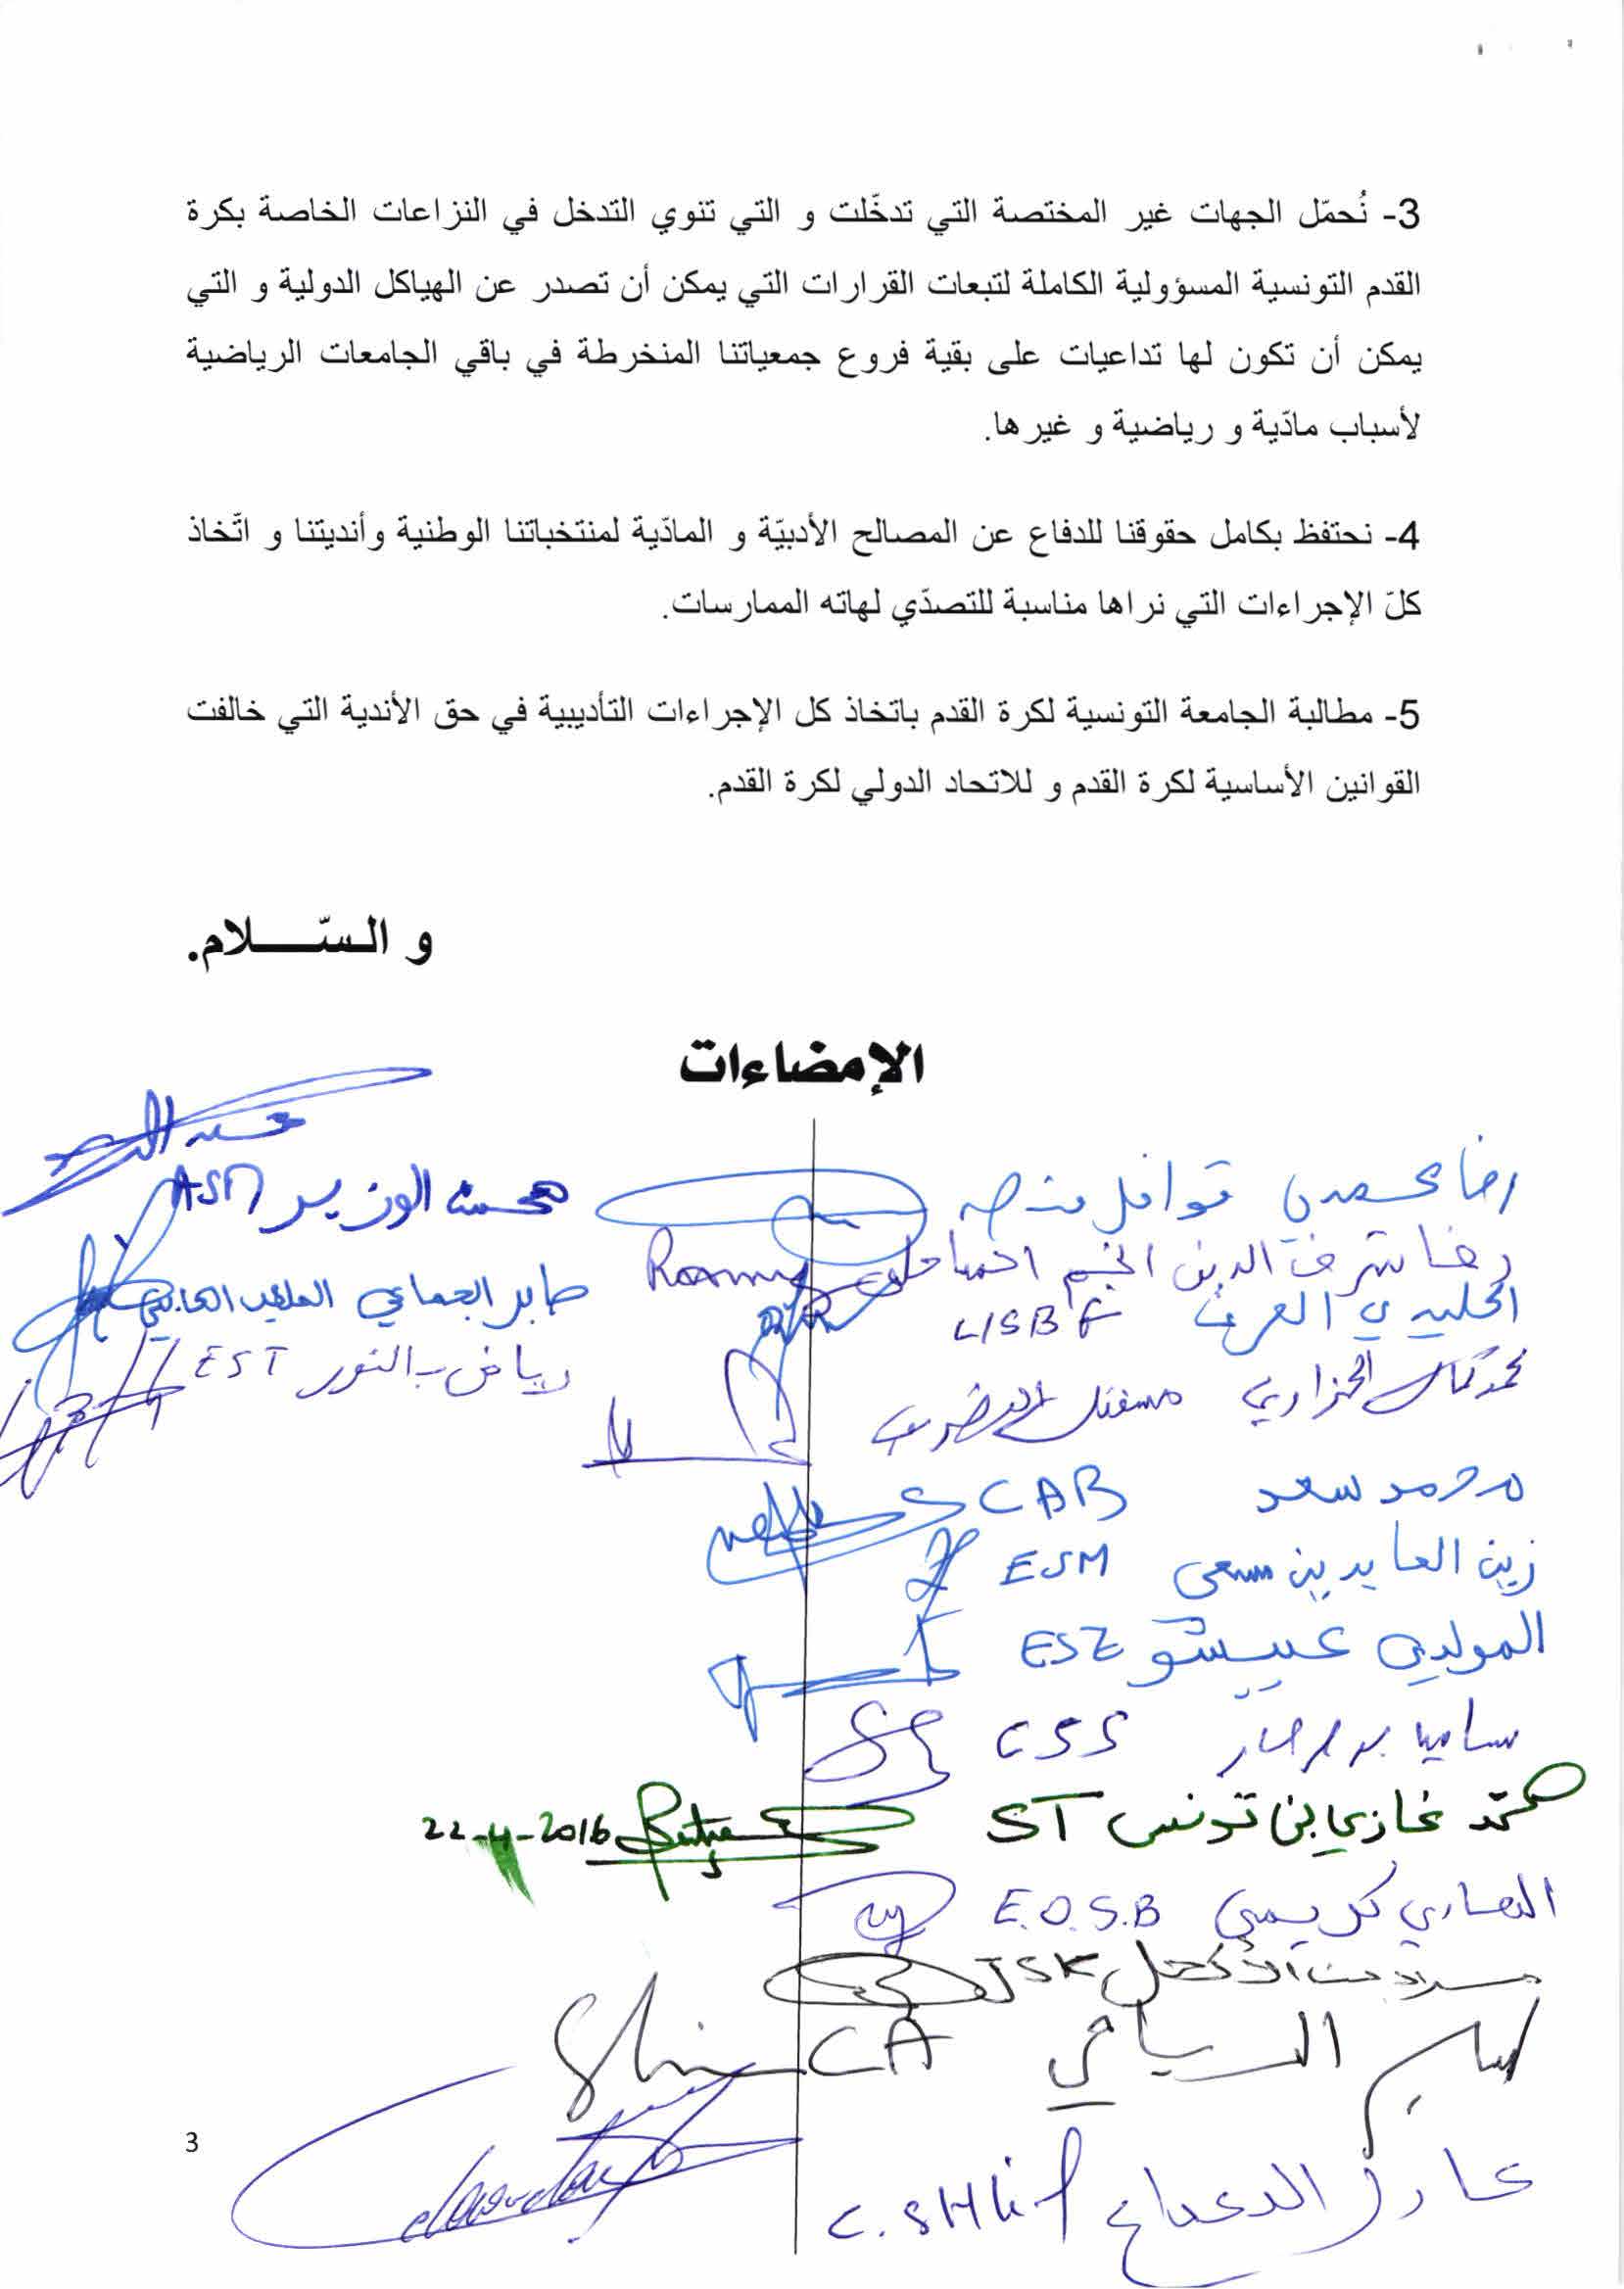 3- نُحمّل الجهات غير المختصة التي تدخّلت و التي تنوي التدخل في النزاعات الخاصة بكرة
القدم التونسية المسؤولية الكاملة لتبعات القرارات التي يمكن أن تصدر عن الهياكل الدولية و التي
يمكن أن تكون لها تداعيات على بقية فروع جمعياتنا المنخرطة في باقي الجامعات الرياضية
لأسباب مادّية و رياضية و غيرها.
4- نحتفظ بكامل حقوقنا للدفاع عن المصالح الأدبيّة و المادّية لمنتخباتنا الوطنية وأنديتنا و اتّخاذ
كلّ الإجراءات التي نراها مناسبة للتصدّي لهاته الممارسات.
5- مطالبة الجامعة التونسية لكرة القدم باتخاذ كل الإجراءات التأديبية في حق الأندية التي خالفت
القوانين الأساسية لكرة القدم و للاتحاد الدولي لكرة القدم.
و السّــــلام.
الإمضاءات
رضا قوافل
رضا شرف الدين النجم الساحلي
USBG
محمد
محمد سعد CAB
زين العابدين ESM
المولدي عبيشو ESZ
CSS
محمد غازي بن تونس ST
22-4-2016
E.O.S.B
JSK
سليم الرياحي CA
عادل الدعداع C.SHLif
محسن الوزير ASM
صابر الجماعي الملعب القابسي
رياض بالنور EST
3